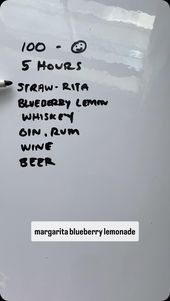 100 - ☺
5 HOURS
STRAW-RITA
BLUEBERRY LEMON
WHISKEY
GIN, RUM
WINE
BEER
margarita blueberry lemonade